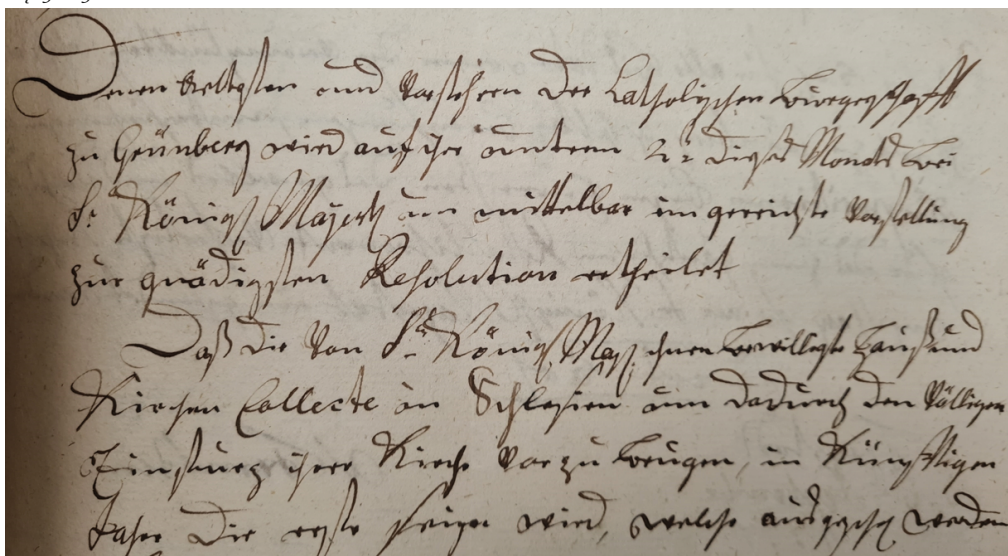 Denen Aeltesten und Vorstehern der Catholischen Bürgerschafft
zu Grünberg wird auf ihre unterm 2t dieses Monats bei
Sr Königl Mayest um mittelbar eingereichte Vorstellung
zur gnädigsten Resolution ertheilet
Daß die Von Sr Königl May ihnen bewilligte Hauß und
Kirchen Collecte in Schlesien um dadurch den Völligen
Einsturz ihrer Kirche Vor zu beugen, in Künfftigen
Jahre die erste seyn wird, welche ausgesch werden